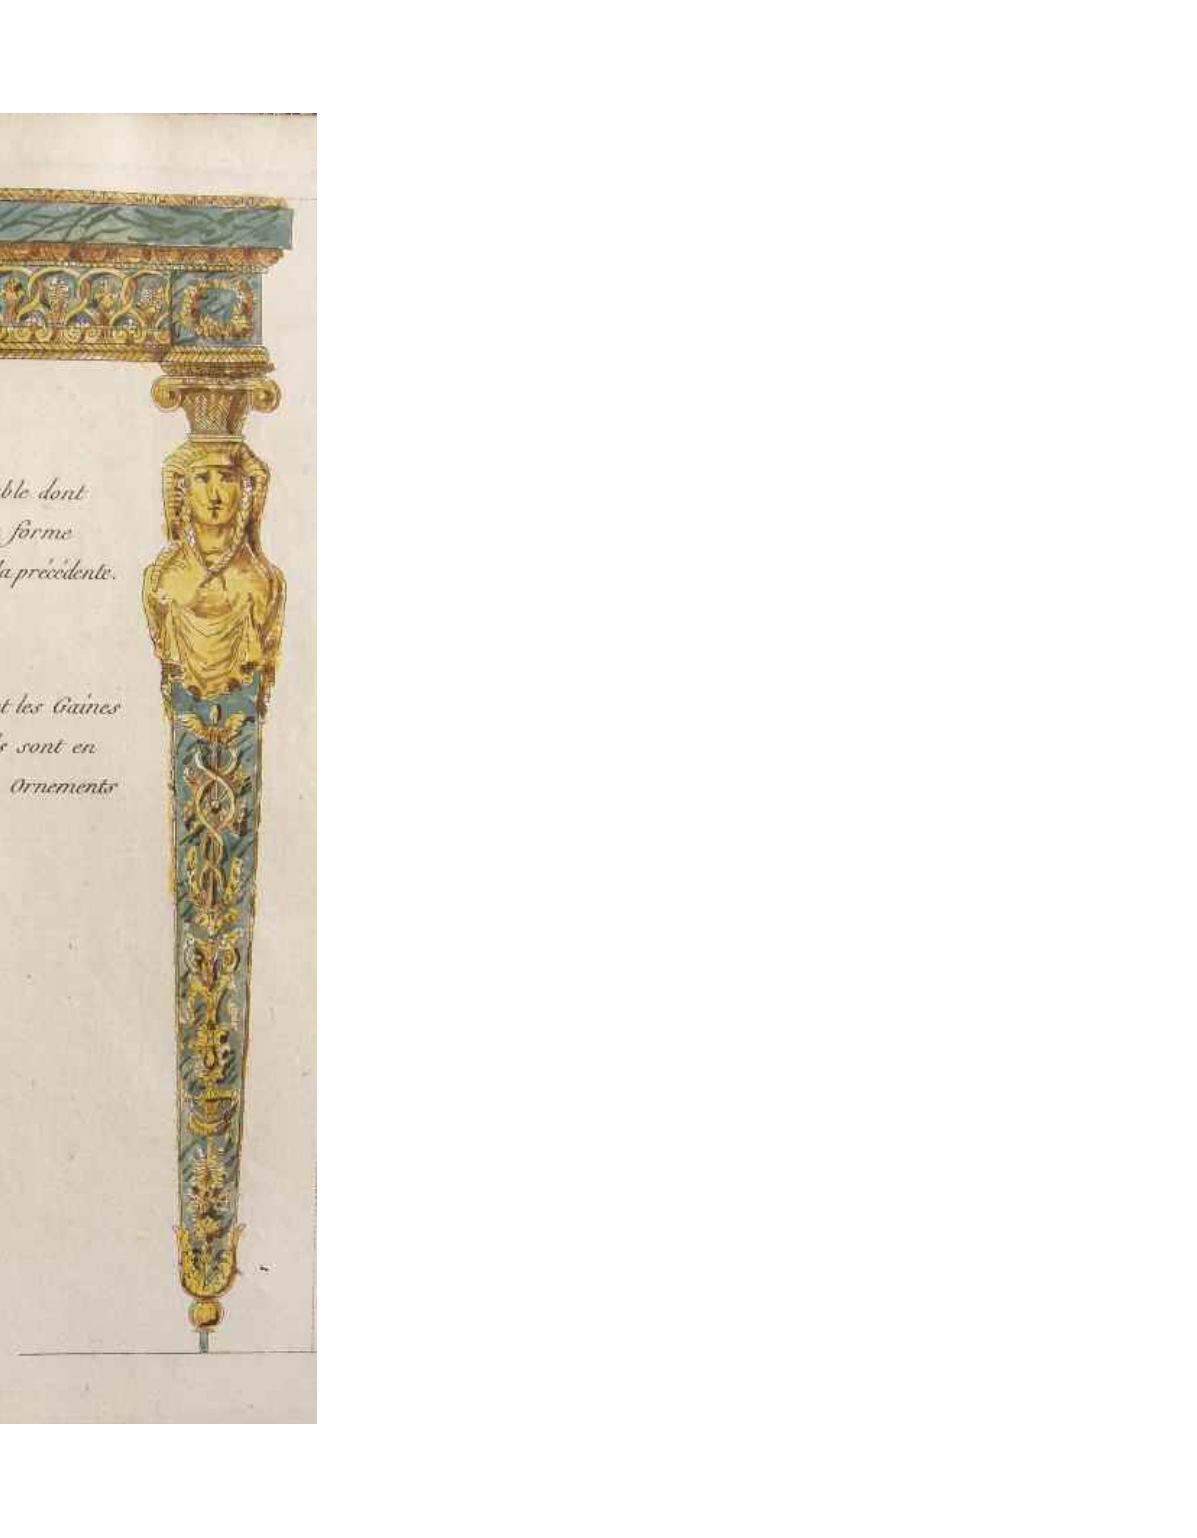 ble dont
forme
la précédente.
t les Gaines
s sont en
Ornements